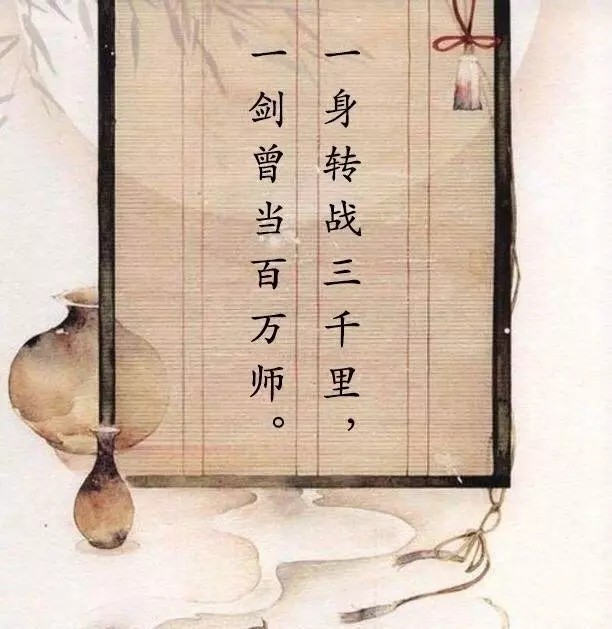 一身转战三千里，
一剑曾当百万师。